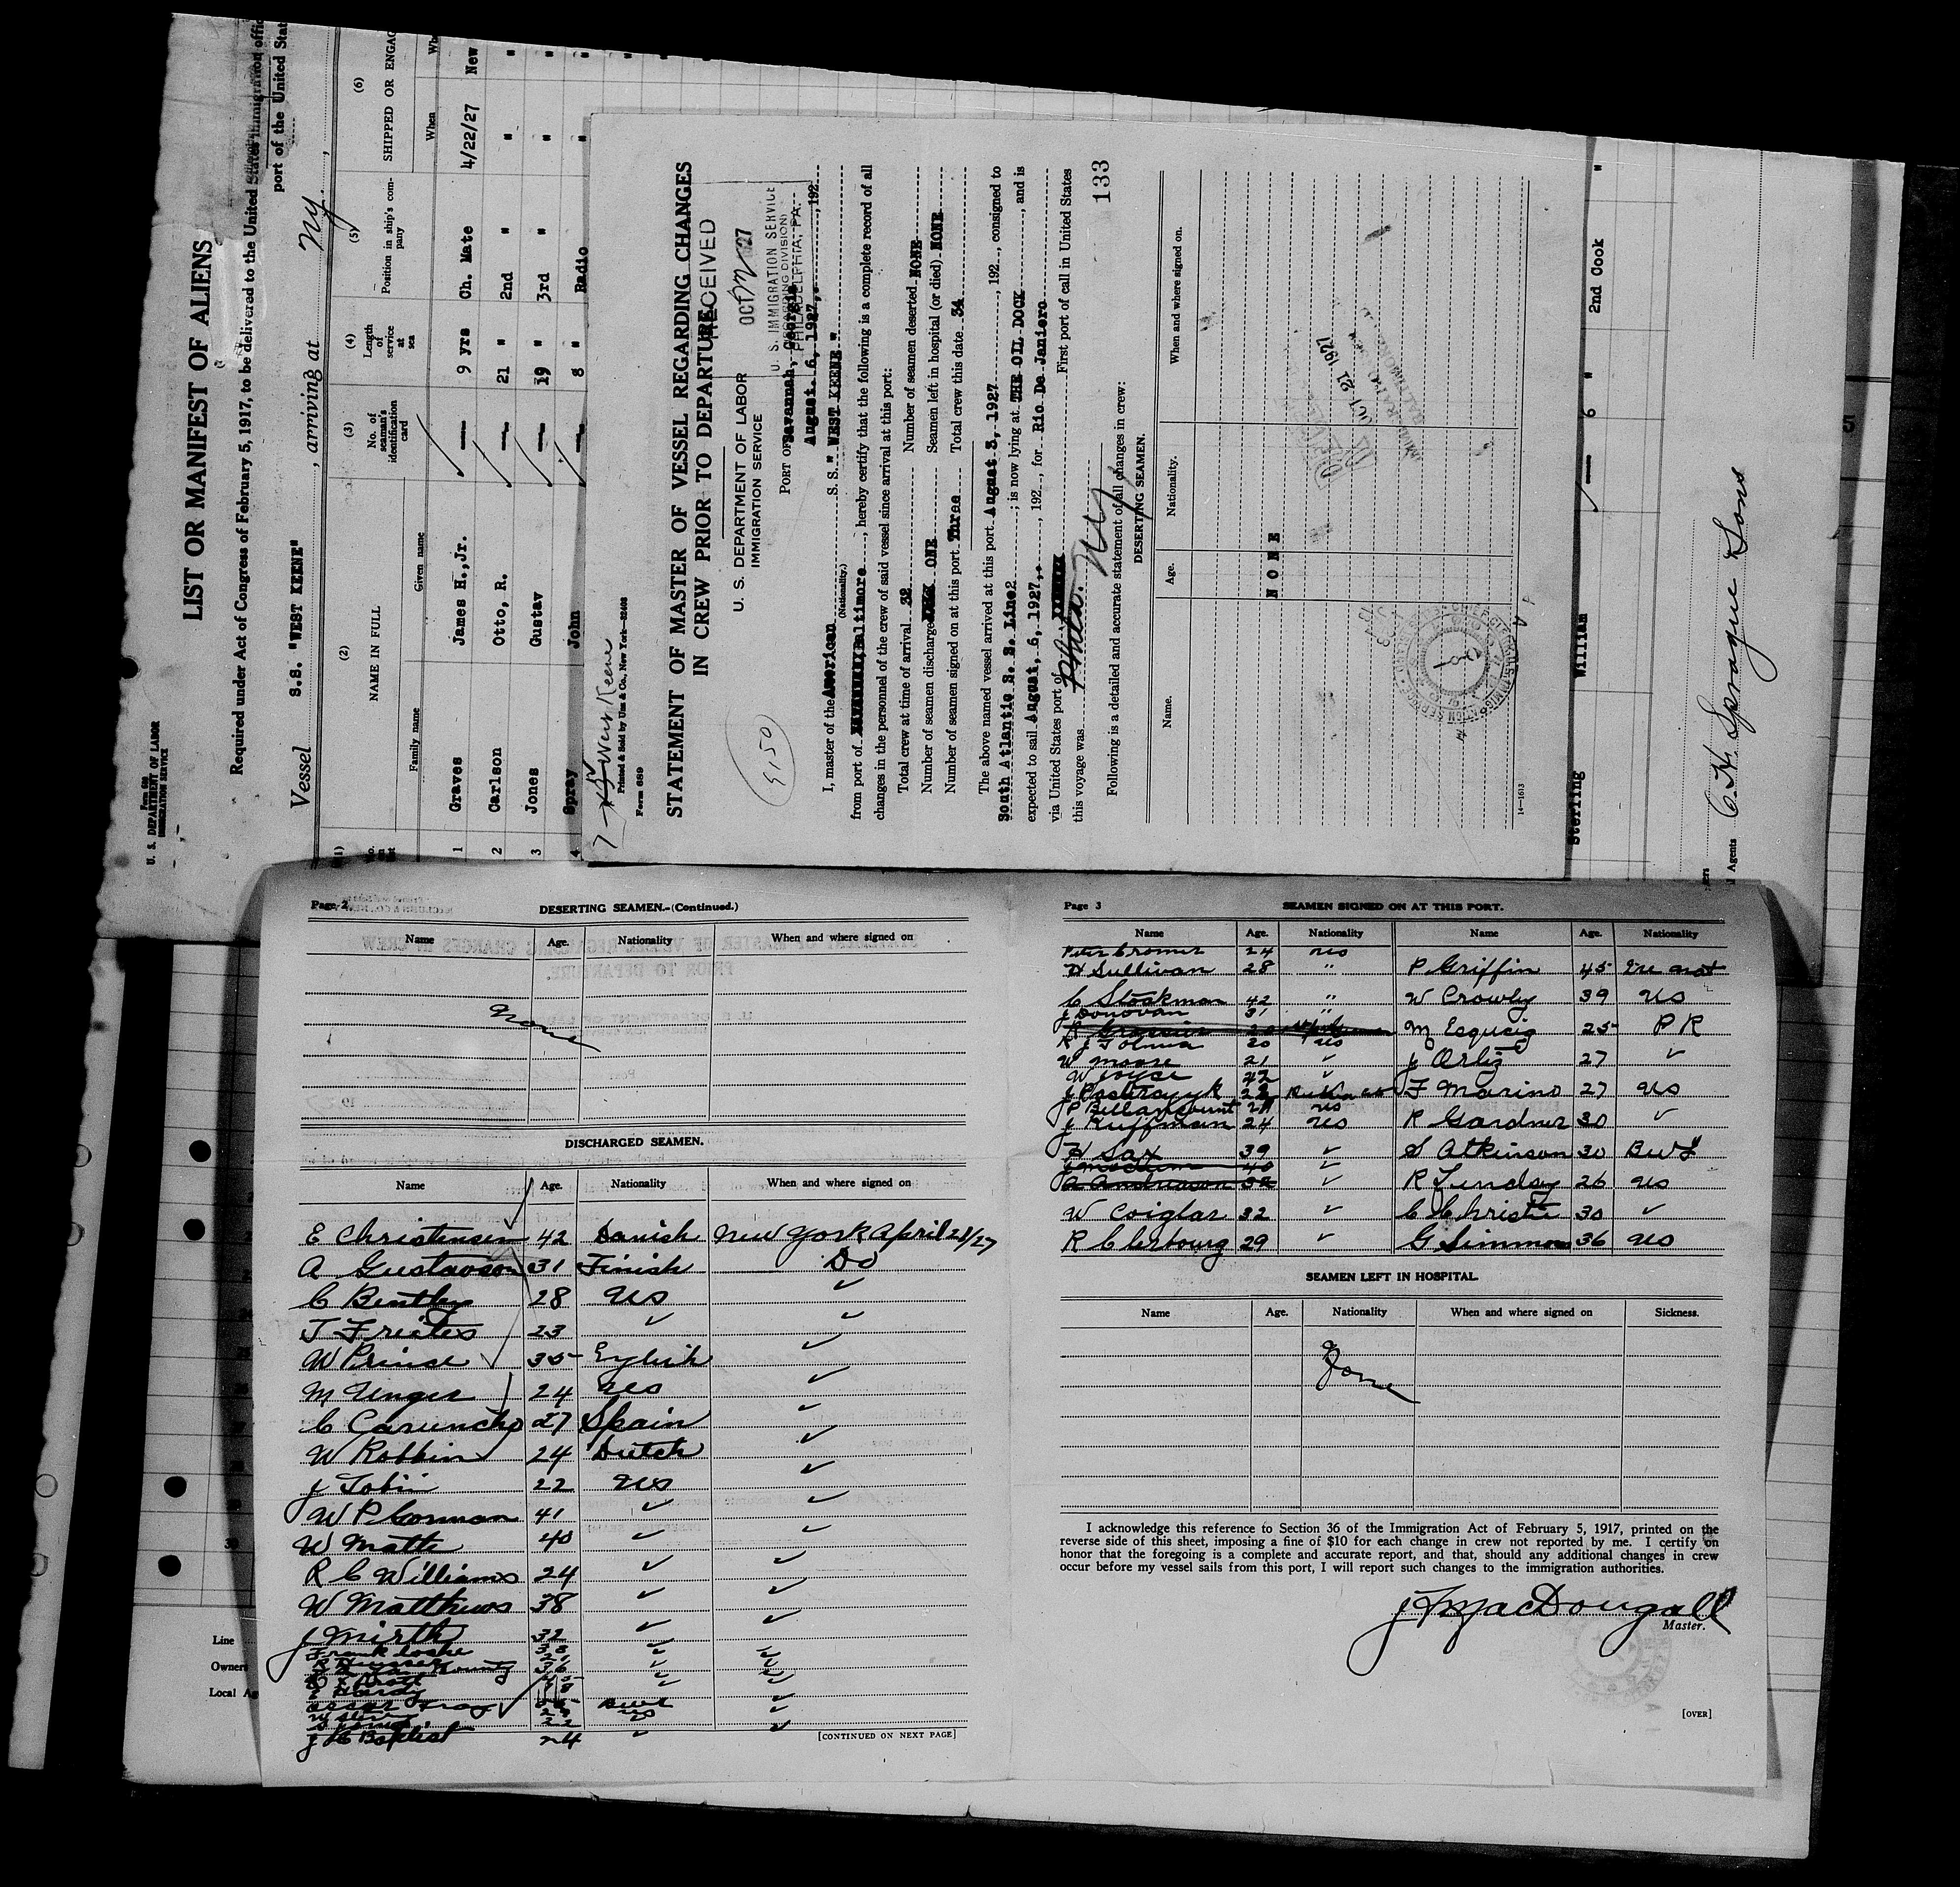 Form 680
U. S. DEPARTMENT OF LABOR
IMMIGRATION SERVICE
LIST OR MANIFEST OF ALIENS
Required under Act of Congress of February 5, 1917, to be delivered to the United States immigration offic
port of the United Stat
Vessel S.S. "WEST KEENE" , arriving at NY ,
(2) (3) (4) (5) (6)
NAME IN FULL No. of seaman's identification card Length of service at sea Position in ship's company SHIPPED OR ENGAG
Family name Given name When Wh
1 Graves James H.,Jr. — 9 yrs Ch. Mate 4/22/27 New
2 Carlson Otto, R. — 21 " 2nd " " "
3 Jones Gustav — 19 " 3rd " " "
4 Spray John — 8 " Radio " "
Sterling William — 6 " 2nd Cook "
Agents C. H. Sprague & Sons
West Keene
Printed & Sold by Unz & Co., New York
Form 689
STATEMENT OF MASTER OF VESSEL REGARDING CHANGES
IN CREW PRIOR TO DEPARTURE
RECEIVED
U. S. DEPARTMENT OF LABOR
IMMIGRATION SERVICE
OCT 1927
U. S. IMMIGRATION SERVICE
PHILADELPHIA, PA.
9150
PORT OF Savannah, Georgia
August. 6, 1927,. , 192
I, master of the American S. S. " WEST KEENE "
(Nationality.)
from port of Baltimore , hereby certify that the following is a complete record of all
changes in the personnel of the crew of said vessel since arrival at this port:
Total crew at time of arrival 32 Number of seamen deserted NONE
Number of seamen discharged ONE Seamen left in hospital (or died) NONE
Number of seamen signed on at this port Three Total crew this date 34
The above named vessel arrived at this port August 3, 1927 , 192 , consigned to
South Atlantic S. S. Line2 ; is now lying at THE OIL DOCK , and is
expected to sail August, 6, 1927,. , 192 , for Rio De Janiero
via United States port of First port of call in United States
this voyage was Phila. NY
133
Following is a detailed and accurate statement of all changes in crew:
DESERTING SEAMEN.
Name. Age. Nationality. When and where signed on.
N O N E
OCT 21 1927
14—1613
Page 2
DESERTING SEAMEN.-(Continued.)
Name Age. Nationality When and where signed on
None
DISCHARGED SEAMEN.
Name Age. Nationality When and where signed on
E Christensen 42 Danish New York April 28/27
A Gustavson 31 Finish Do
C Bentley 28 US ✓
T Freites 23 ✓ ✓
W Prinse 35 ✓
M Unger 24 US ✓
C Caruncho 27 Spain ✓
W Robbin 24 Dutch ✓
J Tobin 22 US ✓
W P Gorman 41 ✓ ✓
W Matte 40 ✓ ✓
R C Williams 24 ✓ ✓
W Matthews 38 ✓ ✓
J Mirth 32 ✓ ✓
J H Baptist 24 ✓ ✓
[CONTINUED ON NEXT PAGE]
Page 3
SEAMEN SIGNED ON AT THIS PORT.
Name Age. Nationality Name Age. Nationality
Peter Cromer 24 US
H Sullivan 28 " P Griffin 45
C Stockman 42 " W Crowley 39 US
J Donovan 31 "
M Esqueig 25 P R
20 US
W Moore 21 ✓ J Ortiz 27 ✓
W Joyce 42 ✓
F Marino 27 US
US
J Kuffman 24 US R Gardner 30 ✓
H Sax 39 ✓ S Atkinson 30 BWI
R Lindsy 26 US
W Coiglar 32 ✓ C Christie 30 ✓
R Clerbourg 29 ✓ G Simmon 36 US
SEAMEN LEFT IN HOSPITAL.
Name Age. Nationality When and where signed on Sickness.
None
I acknowledge this reference to Section 36 of the Immigration Act of February 5, 1917, printed on the
reverse side of this sheet, imposing a fine of $10 for each change in crew not reported by me. I certify on
honor that the foregoing is a complete and accurate report, and that, should any additional changes in crew
occur before my vessel sails from this port, I will report such changes to the immigration authorities.
J F MacDougall
Master.
[OVER]
Line
Owners
Local Ag